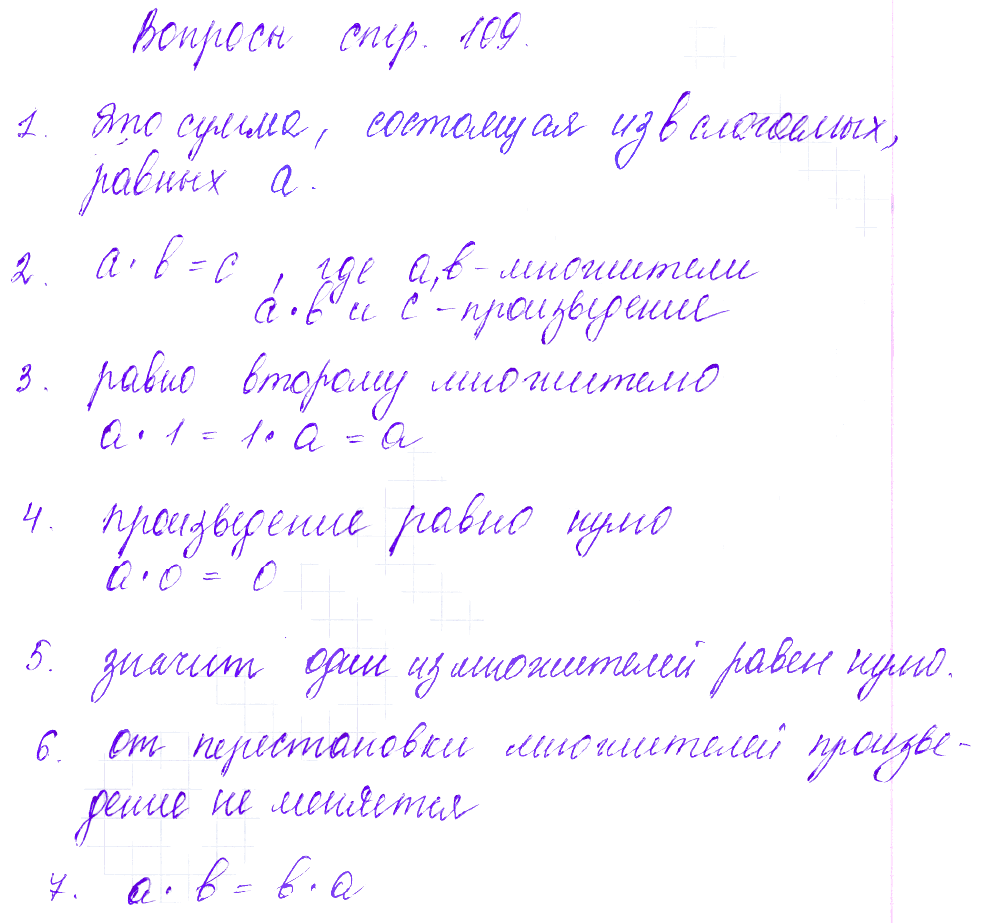 Вопросы стр. 109.
1. это сумма, состоящая из в слагаемых,
равных а.
2. а · в = с , где а, в - множители
а · в и с - произведение
3. равно второму множителю
а · 1 = 1 · а = а
4. произведение равно нулю
а · 0 = 0
5. значит один из множителей равен нулю.
6. от перестановки множителей произве-
дение не меняется
7. а · в = в · а